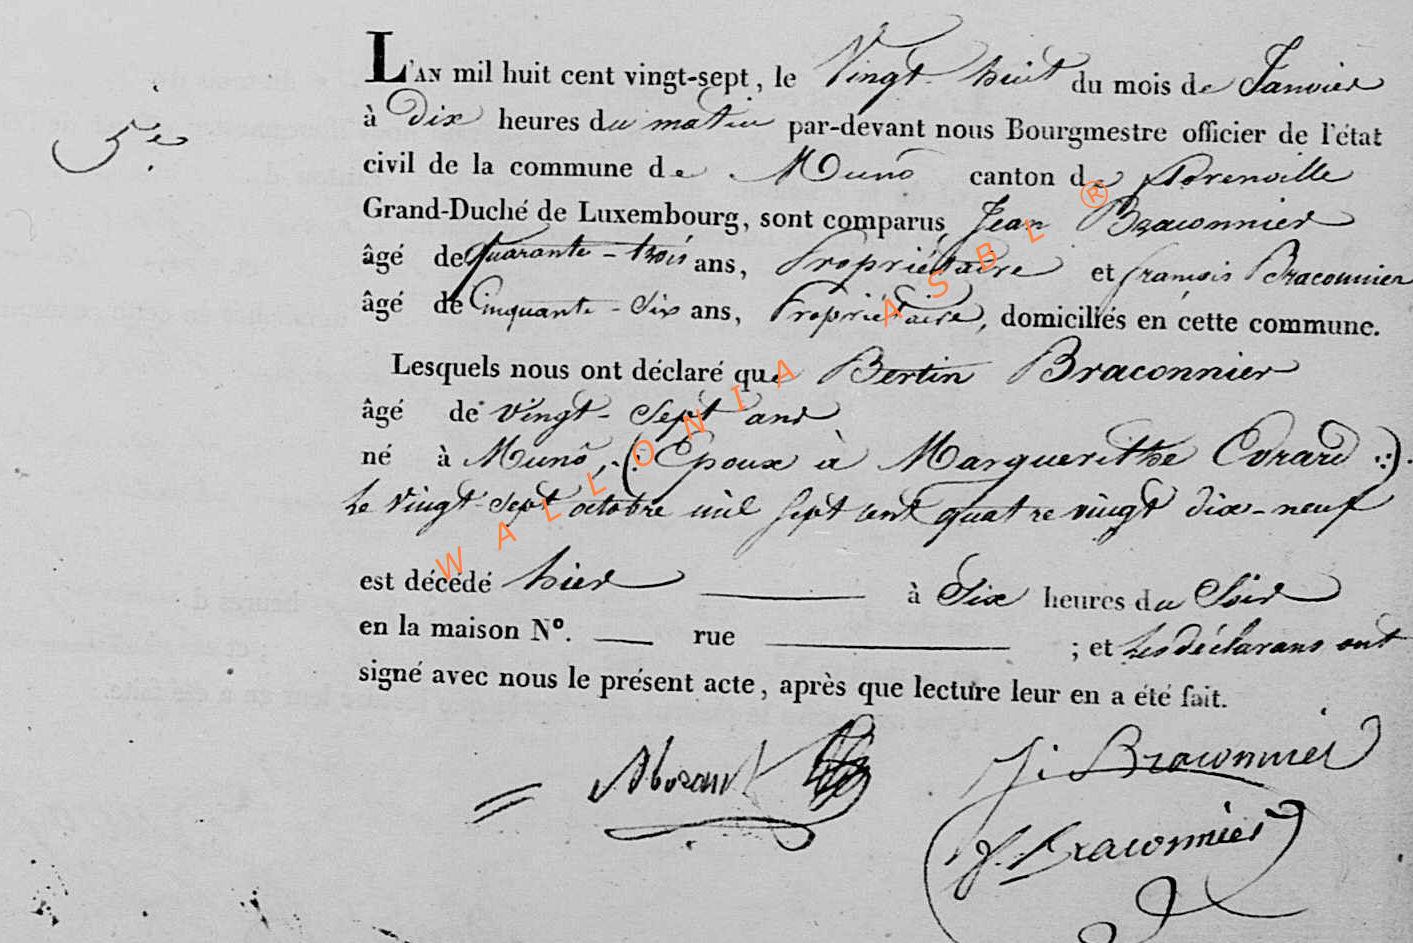 L'AN mil huit cent vingt-sept, le Vingt huit du mois de Janvier
5e
à Dix heures du matin par-devant nous Bourgmestre officier de l'état
civil de la commune de Muno canton de Florenville
Grand-Duché de Luxembourg, sont comparus Jean Braconnier
âgé de quarante-trois ans, Propriétaire et françois Braconnier
âgé de Cinquante-Six ans, Propriétaire, domiciliés en cette commune.
Lesquels nous ont déclaré que Bertin Braconnier
âgé de vingt-Sept ans
né à Muno, (: Epoux à Marguerithe Evrard :).
le vingt-sept octobre mil sept cent quatre vingt dix-neuf
est décédé hier à Six heures du Soir
en la maison N°. rue ; et les déclarans ont
signé avec nous le présent acte, après que lecture leur en a été fait.
J: Braconnier
f. Braconnier
WALLONIA ASBL ®